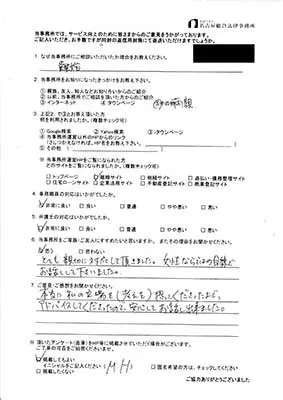 名古屋総合法律事務所
当事務所では、サービス向上のために皆さまからのご意見をうかがっております。
ご記入いただき、お手数ですが同封の返信用封筒にて返送いただけますでしょうか。
1. なぜ当事務所にご相談いただいたか理由をお聞かせください。
離婚
2. 当事務所をお知りになったきっかけをお教え下さい。
①親族、友人、知人などお知り合いからのご紹介
②以前、当事務所でご相談を頂いた方からのご紹介
③インターネット ④タウンページ
3. 上記2. で③とお答え頂いた方
何を利用されましたか。(複数チェック可)
①Google検索 ②Yahoo検索 ③タウンページ
④当事務所運営以外のHPからのリンク
(さしつかえなければ、HP名をお教え下さい。)
⑤その他(
※当事務所運営HPをご覧になられた方
どのサイトをご覧になられましたか。(複数チェック可)
トップページ 離婚サイト 相続サイト 過払い・債務整理サイト
住宅ローンサイト 企業法務サイト 不動産登記サイト 商業登記サイト
4. 事務職員の対応はいかがでしたか。
非常に良い 良い 普通 やや悪い 悪い
5. 弁護士の対応はいかがでしたか。
非常に良い 良い 普通 やや悪い 悪い
6. 当事務所をご家族・ご友人にすすめたいと思いますか。またその理由をお聞かせください。
思う 思わない
とても親切に対応して頂きました。女性ならではの目線で
お話しして下さいました。
7. ご意見・ご感想をお聞かせください。
本当に私の立場を(考えを)思ってくださったようで、
アドバイスしてくださったので、安心してお話し出来ました。
※頂いたアンケート(直筆)をHP等に掲載させていただく場合がございます。
ご了承の可否をご結構くださいませ。
掲載してもよい
イニシャルをご記入ください( M.H ) 匿名希望の方は、チェックしてください
掲載したくない
ご協力ありがとうございました